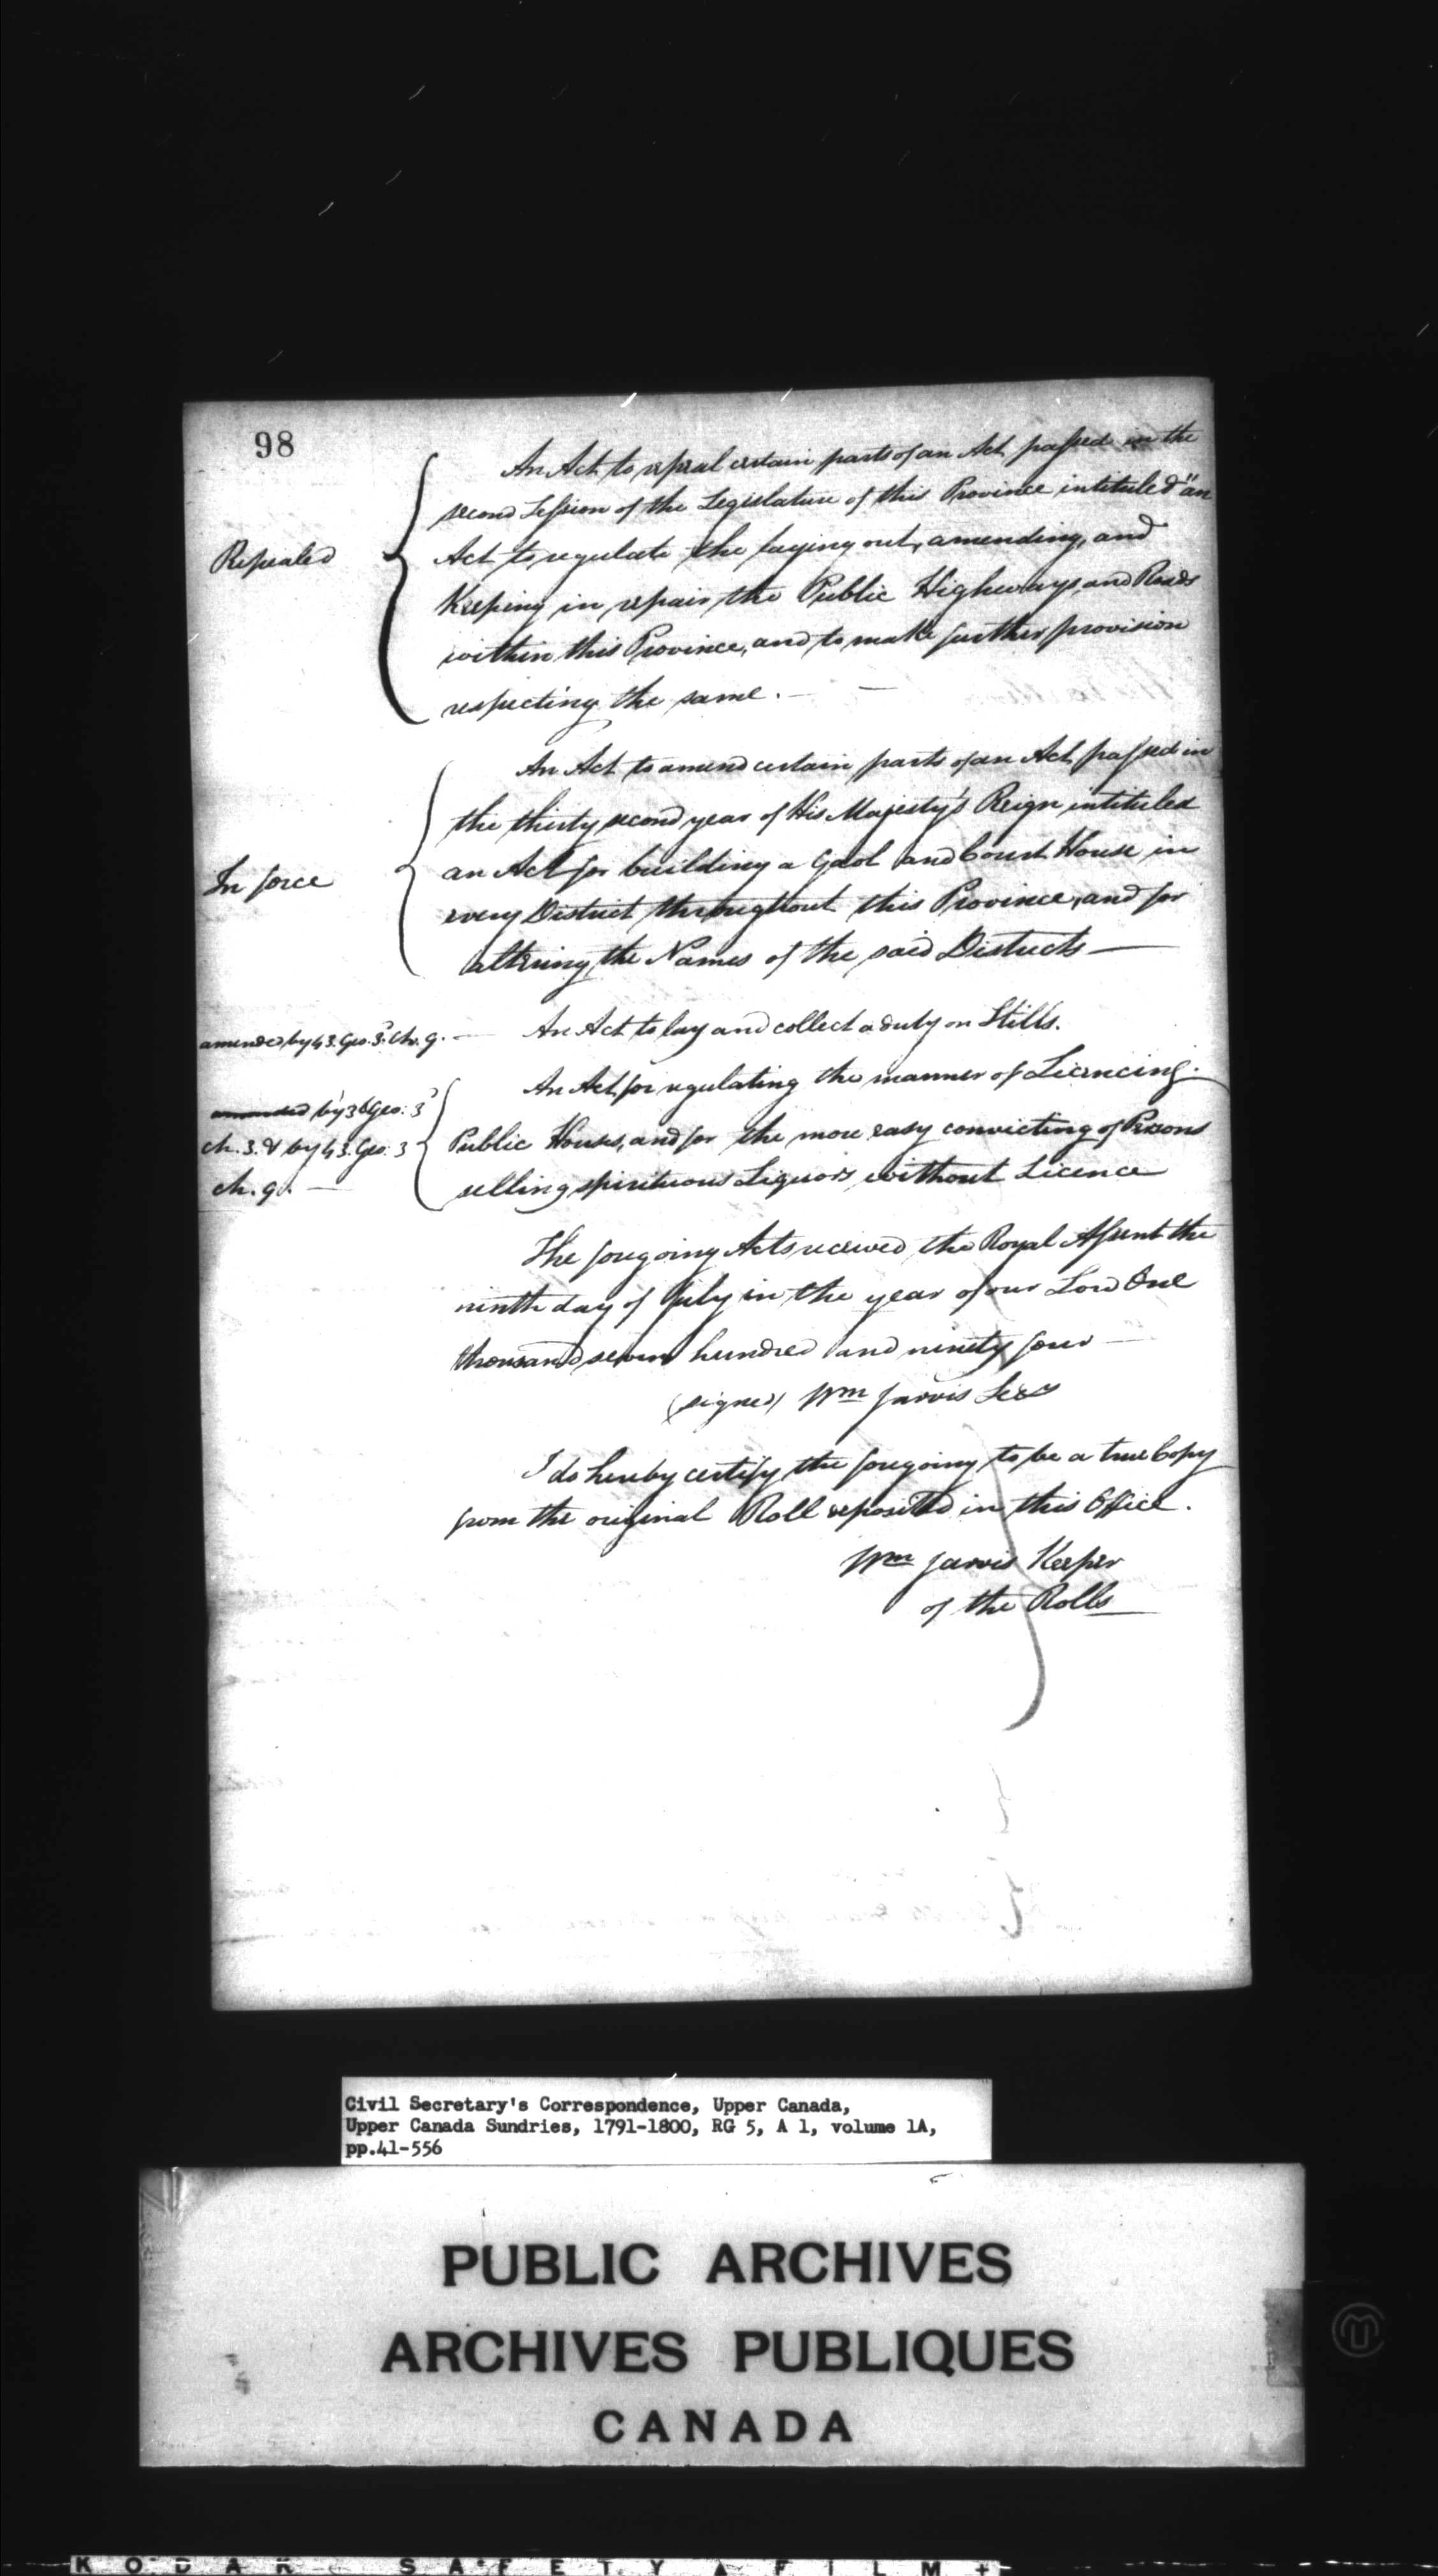 98
An Act to repeal certain parts of an Act passed in the
second Session of the Legislature of this Province intituled "an
Repealed
Act to regulate the laying out, amending, and
Keeping in repair the Public Highways and Roads
within this Province, and to make further provision
respecting the same. —
An Act to amend certain parts of an Act passed in
the thirty second year of His Majesty's Reign intituled
In force
an Act for building a Gaol and Court House in
every District throughout this Province, and for
altering the Names of the said Districts —
amended by 43. Geo. 3. Ch. 9. — An Act to lay and collect a duty on Stills.
An Act for regulating the manner of Licencing
amended by 36 Geo: 3
ch. 3. & by 43. Geo. 3
ch. 9. —
Public Houses, and for the more easy convicting of Persons
selling spirituous Liquors without Licence
The foregoing Acts received the Royal Assent the
ninth day of July in the year of our Lord One
thousand seven hundred and ninety four —
(signed) Wm Jarvis Secy
I do hereby certify the foregoing to be a true Copy
from the original Roll deposited in this Office.
Wm Jarvis Keeper
of the Rolls
Civil Secretary's Correspondence, Upper Canada,
Upper Canada Sundries, 1791-1800, RG 5, A 1, volume 1A,
pp.41-556
PUBLIC ARCHIVES
ARCHIVES PUBLIQUES
CANADA
KODAK SAFETY FILM